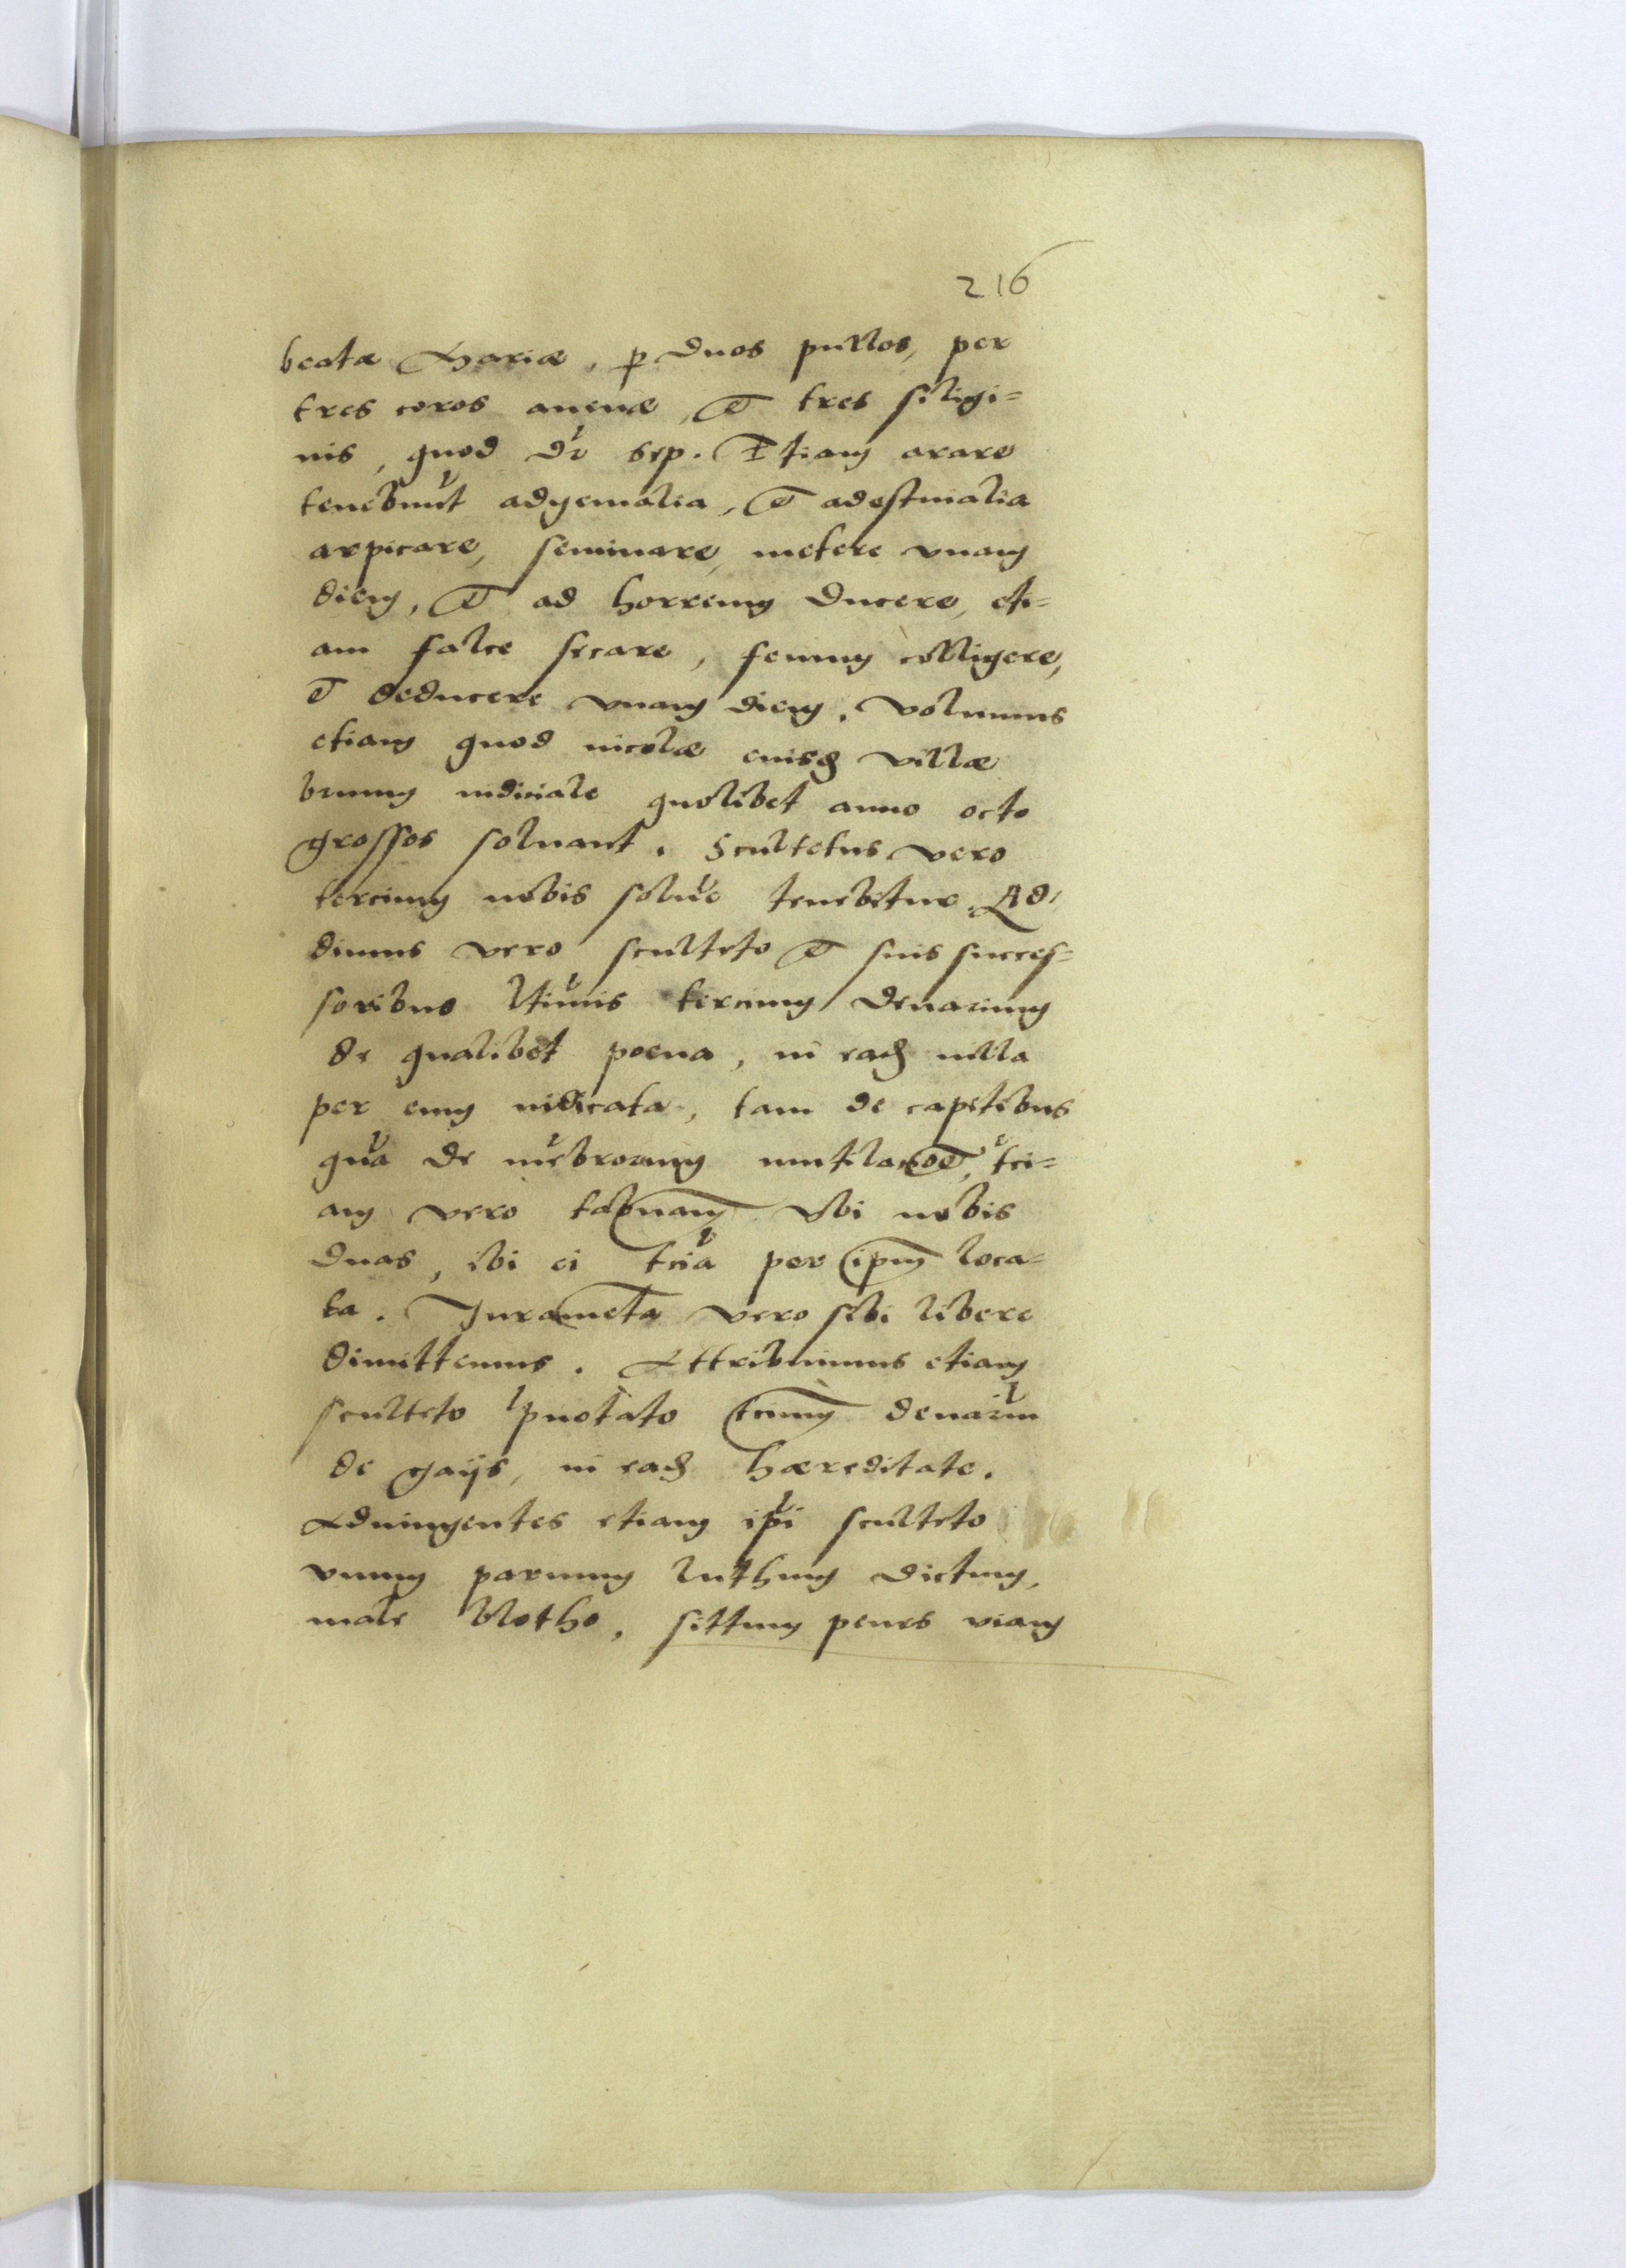 216
beatæ Mariæ, p duos pullos, per
tres coros auenæ, et tres siligi=
nis, quod dr sep. Etiam arare
tenebunt adyemalia, et adestiualia
arpicare, seminare, metere vnam
diem, et ad horreum ducere, eti=
am falce secare, fenum colligere,
et deducere vnam diem. Volumus
etiam quod incolæ eiusdem villæ
bannum iudiciale quolibet anno octo
grossos soluant. Scultetus vero
tercium nobis solue tenebitur. Ad=
dimus vero sculteto et suis succes=
soribus ltimis tercium denarium
de qualibet poena, in eadem uilla
per eum iudicata, tam de capitibus
qua de mebrorum mutilatoe, tci=
am vero tabnam vbi nobis
duas, ibi ei tcia per ipm loca=
ta. Jurameta vero sibi libere
dimittemus. Attribuimus etiam
sculteto pnotato tcium denariu
de gaijs, in eadem hæreditate.
Adiungentes etiam ipi sculteto
vnum paruum luthum dictum,
male blotho, sittum penes viam